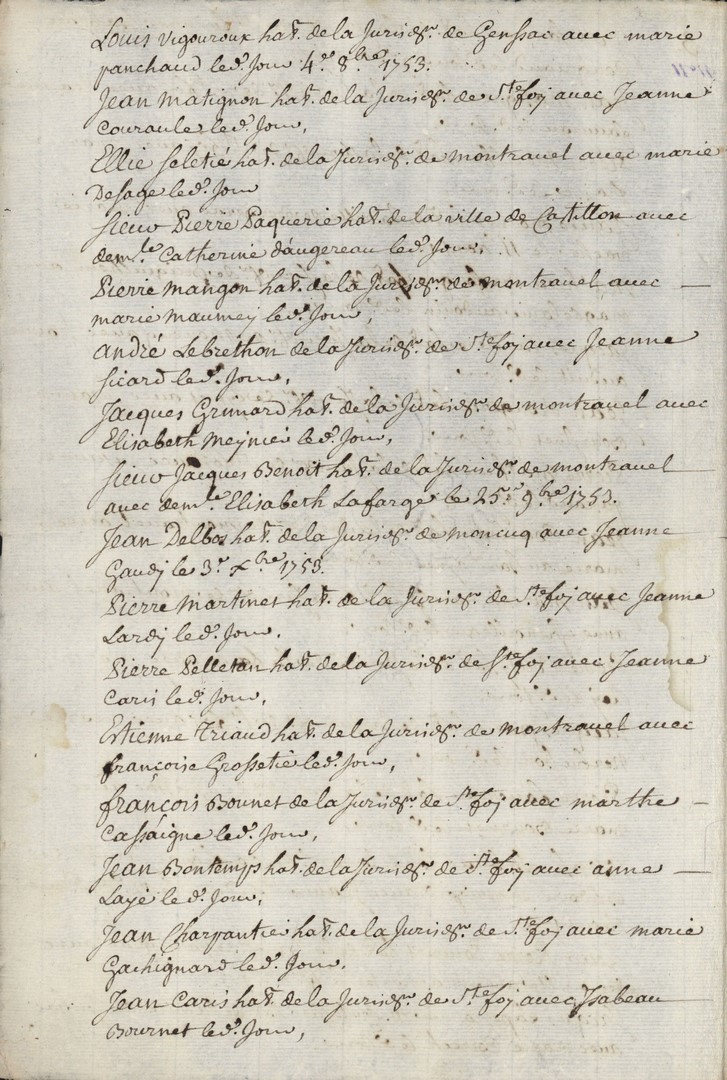 Louis Vigouroux hat. de la Jurisdn. de Genssac avec marie
panchaud led. Jour 4e. 8bre 1753.
Jean Matignon hat. de la Jurisdn. de Ste foj avec Jeanne
Couraule led. Jour,
Ellie Seletié hat. de la Jurisdn. de montravel avec marie
Desage led. Jour
Sieur Pierre Paquerie hat. de la ville de Castillon avec
demle. Catherine daugereau led. Jour,
Pierre Mangon hat. de la Jurisdn. de montravel avec
marie Maumej led. Jour,
André Lebrethon de la Jurisdn. de Ste foj avec Jeanne
Sicard led. Jour,
Jacques Grimard hat. de la Jurisdn. de montravel avec
Elisabeth Meynié led. Jour,
Sieur Jacques Benoit hat. de la Jurisdn. de montravel
avec demle. Elisabeth Lafarge le 25e. 9bre 1753.
Jean Delbos hat. de la Jurisdn. de moncuq avec Jeanne
Gaudj le 3e. xbre 1753.
Pierre Martinet hat. de la Jurisdn. de Ste foj avec Jeanne
Lardj led. Jour.
Pierre Pelletan hat. de la Jurisdn. de Ste foj avec Jeanne
Caris led. Jour,
Estienne Triaud hat. de la Jurisdn. de montravel avec
françoise Grossetié led. Jour,
françois Bounet de la Jurisdn. de Ste foj avec marthe
Cassaigne led. Jour,
Jean Bontemps hat. de la Jurisdn. de Ste foj avec anne
Layé led. Jour,
Jean Charpantié hat. de la Jurisdn. de Ste foj avec marie
Gachignard led. Jour.
Jean Caris hat. de la Jurisdn. de Ste foj avec Isabeau
Bournet led. Jour,